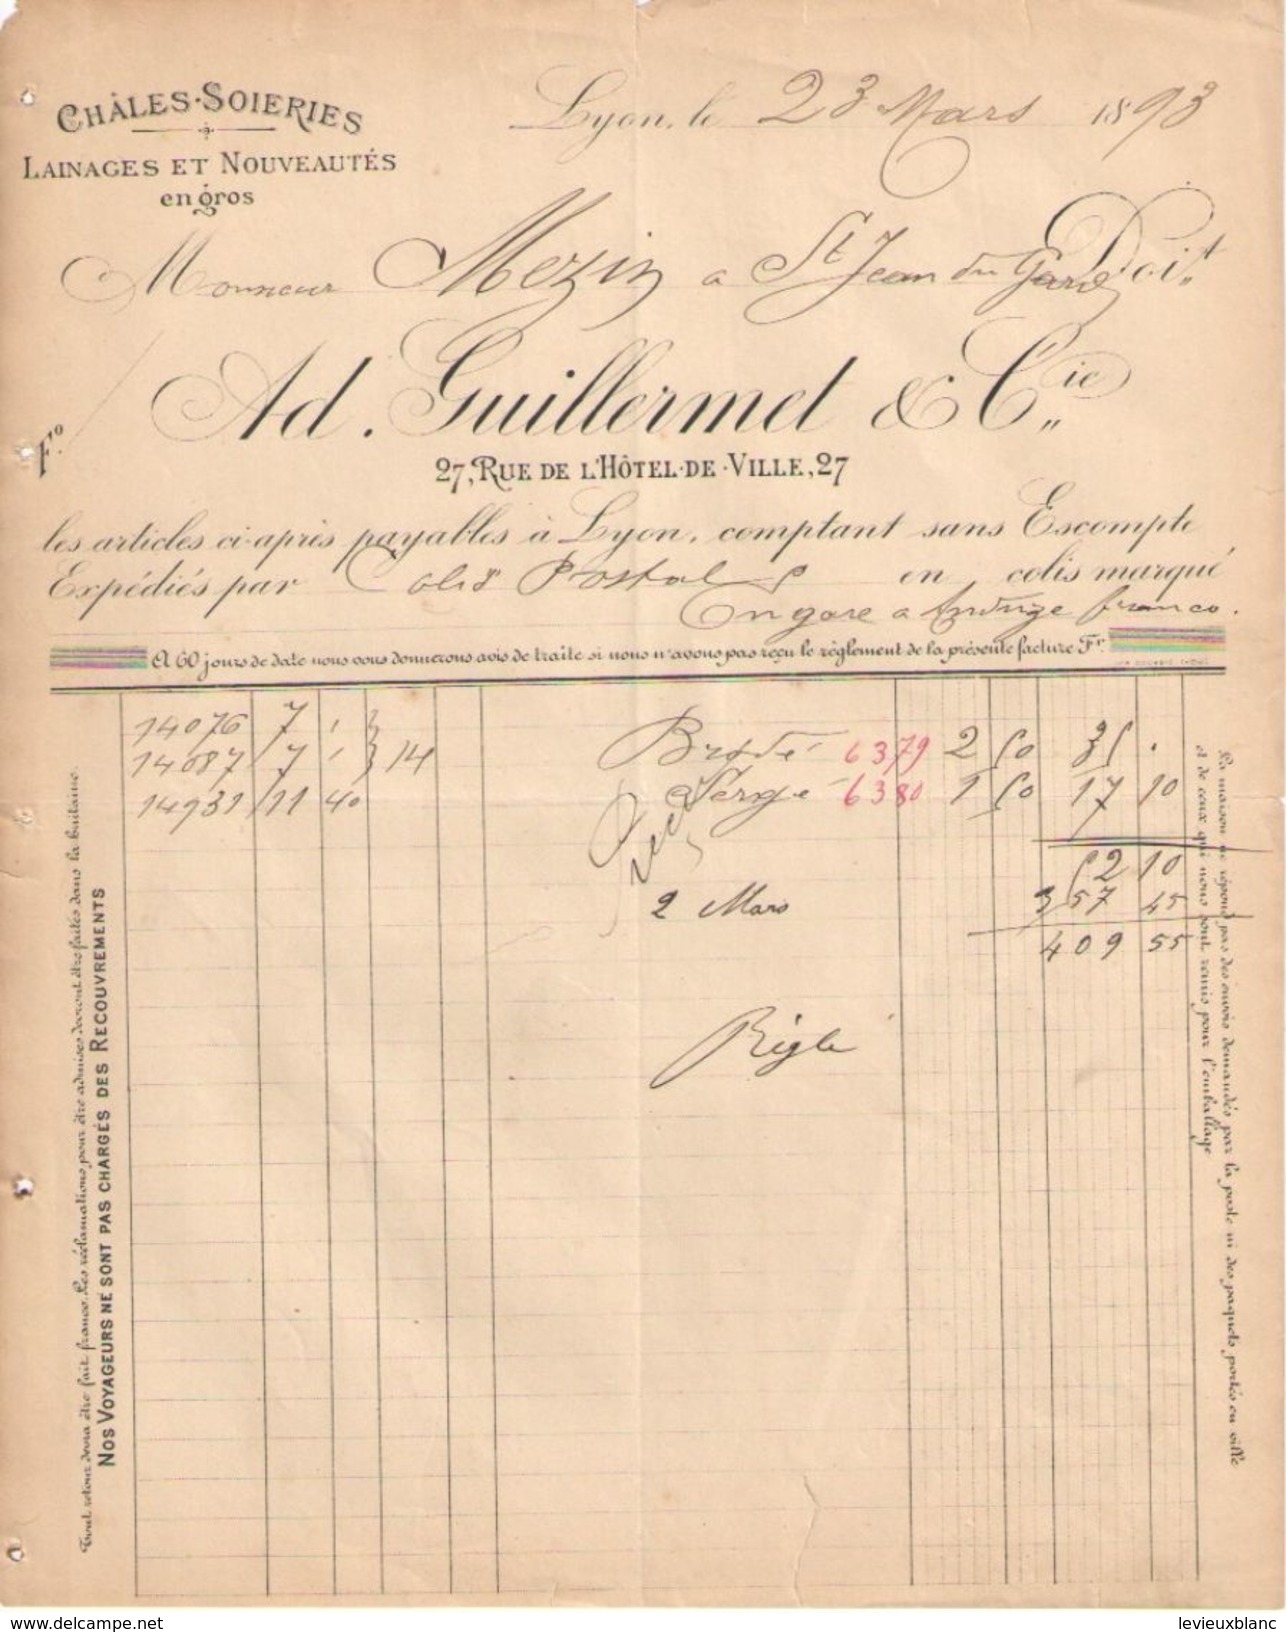 CHÂLES-SOIERIES
LAINAGES ET NOUVEAUTÉS
en gros
Lyon, le 23 Mars 1893
Monsieur Mezin a St Jean du Gard Doit
Ad. Guillermet & Cie
Fo
27, RUE DE L'HÔTEL-DE-VILLE, 27
les articles ci-après payables à Lyon, comptant sans Escompte
Expédiés par Colis Postal en colis marqué
En gare a Anduze franco.
A 60 jours de date nous vous donnerons avis de traite si nous n'avons pas reçu le règlement de la présente facture Fr.
14076 7 14 Brodé 6379 2 50 35 .
14087 7
14931 11 40 Serge 6380 1 50 17 10
52 10
2 Mars 357 45
409 55
Réglé
Tout retour devra être fait franco. Les réclamations pour être admises devront être faites dans la huitaine.
NOS VOYAGEURS NE SONT PAS CHARGÉS DES RECOUVREMENTS
La maison ne répond pas des envois demandés par la poste ni des paquets portés en ville
et de ceux qui nous sont remis pour l'emballage
levieuxblanc